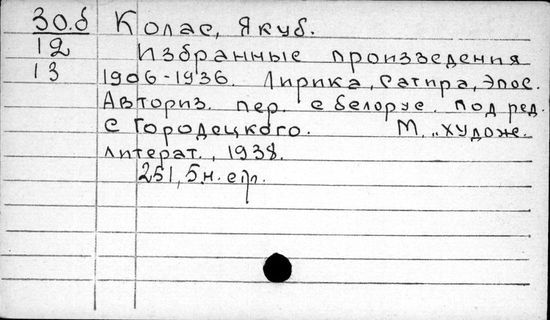 30.б Колас, Якуб.
12 Избранные произведения
13 1906-1936. Лирика, Сатира, Эпос.
Авториз. пер. с белорус. под ред.
С Городецкого. М. „художе.
литерат., 1938.
251, 5 н. стр.